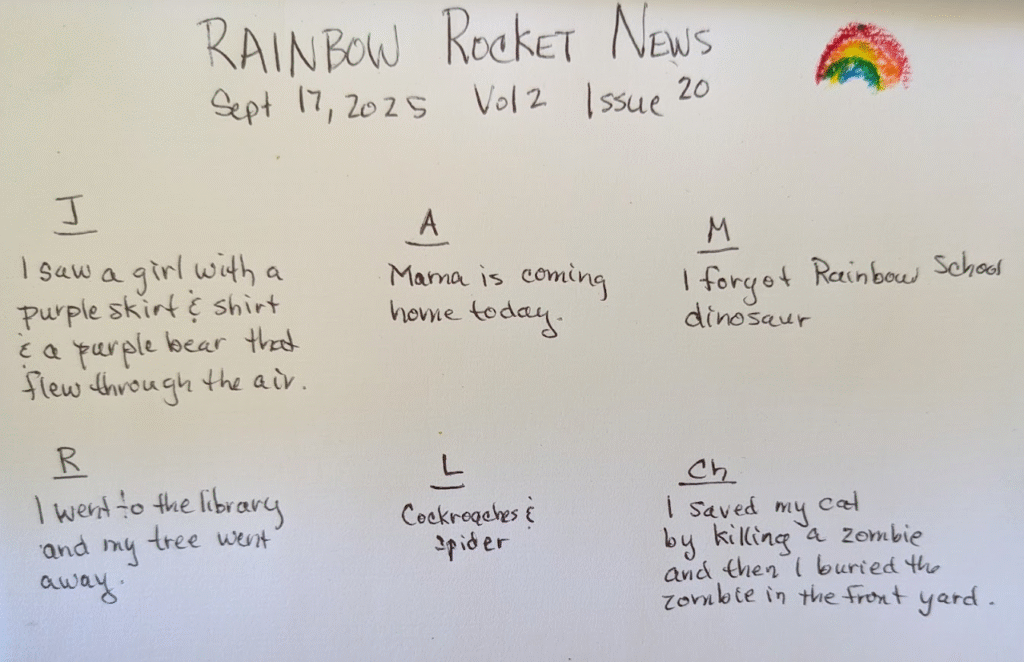 RAINBOW ROCKET NEWS
Sept 17, 2025 Vol 2 Issue 20
J
I saw a girl with a
purple skirt & shirt
& a purple bear that
flew through the air.
A
Mama is coming
home today.
M
I forgot Rainbow School
dinosaur
R
I went to the library
and my tree went
away.
L
Cockroaches &
spider
Ch
I saved my cat
by killing a zombie
and then I buried the
zombie in the front yard.